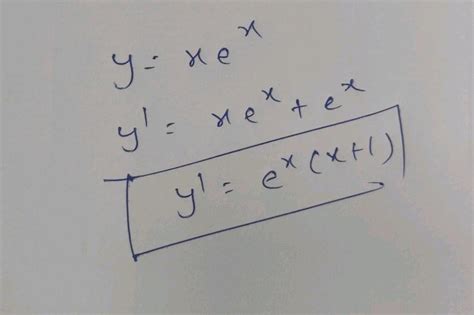 y = xeˣ
y' = xeˣ + eˣ
y' = eˣ(x+1)